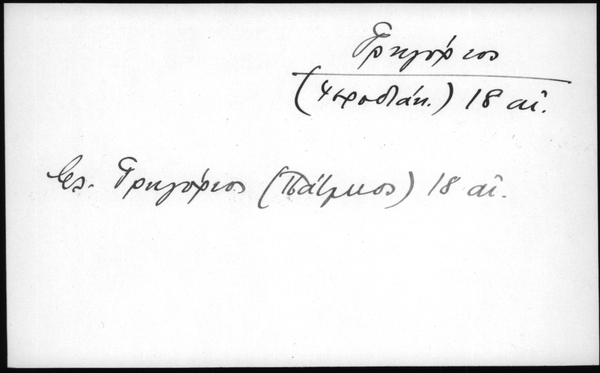 Γρηγόριος
(Ἱεροδιάκ.) 18 αἰ.
βλ. Γρηγόριος (Πάτμιος) 18 αἰ.